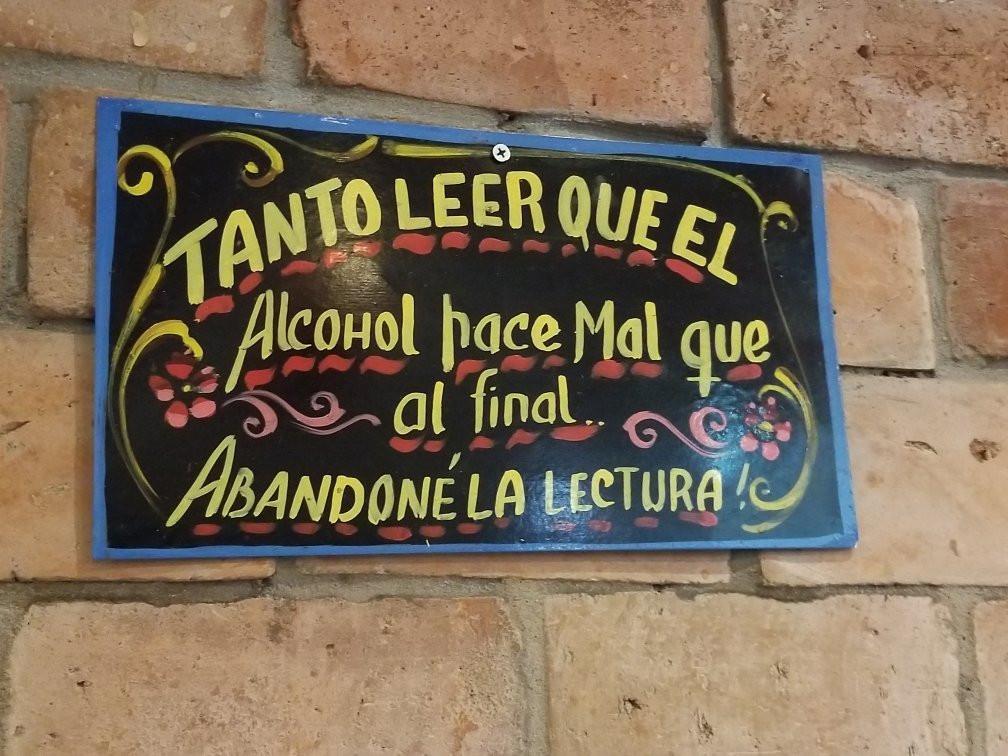 TANTO LEER QUE EL
Alcohol hace Mal que
al final..
ABANDONÉ LA LECTURA!